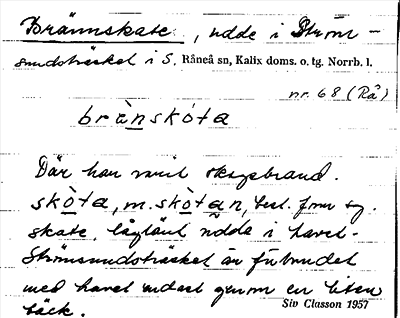 Brännskate, udde i Ström-
sundsträsket i S. Råneå sn, Kalix doms. o. tg. Norrb. l.
nr. 68 (Rå)
brànskóta
Där har varit skogsbrand.
skòta, m. skòtan, best. form sg.
skate, låglänt udde i havet.
Strömsundsträsket är förbundet
med havet endast genom en liten
bäck.
Siv Classon 1957